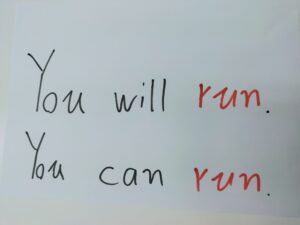 You will run.
You can run.